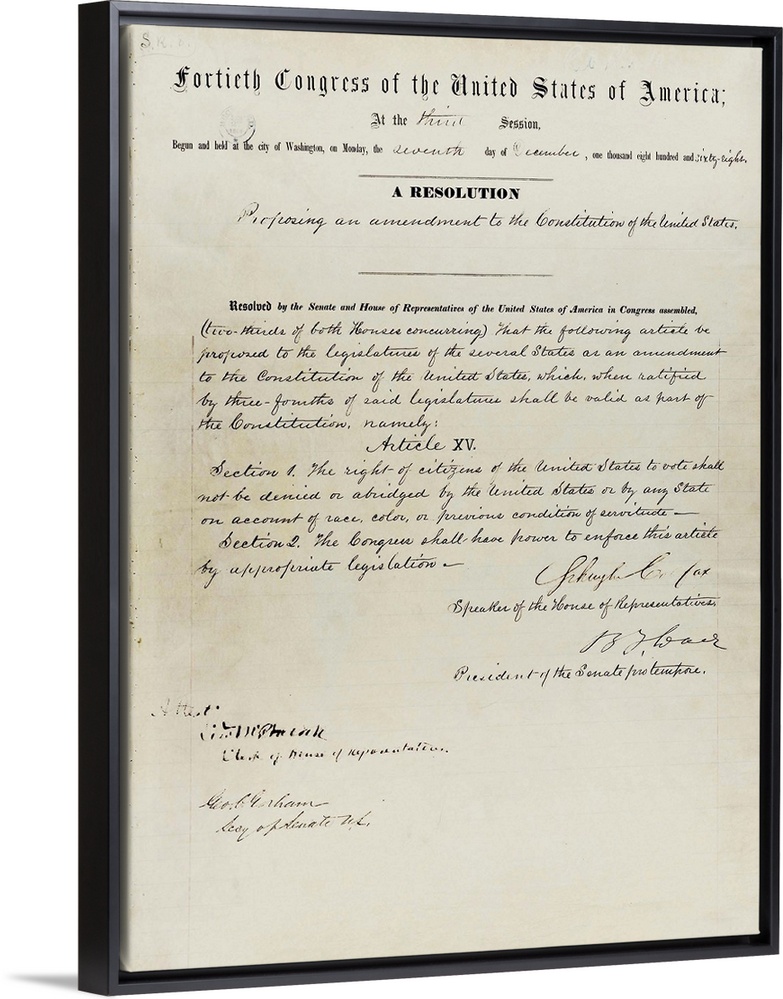 S.R.8.
Fortieth Congress of the United States of America;
At the third Session,
Begun and held at the city of Washington, on Monday, the seventh day of December, one thousand eight hundred and sixty-eight.
A RESOLUTION
Proposing an amendment to the Constitution of the United States.
Resolved by the Senate and House of Representatives of the United States of America in Congress assembled,
(two-thirds of both Houses concurring) That the following article be
proposed to the legislatures of the several States as an amendment
to the Constitution of the United States, which, when ratified
by three-fourths of said legislatures shall be valid as part of
the Constitution, namely:
Article XV.
Section 1. The right of citizens of the United States to vote shall
not be denied or abridged by the United States or by any State
on account of race, color, or previous condition of servitude —
Section 2. The Congress shall have power to enforce this article
by appropriate legislation —
Schuyler Colfax
Speaker of the House of Representatives.
B F Wade
President of the Senate pro tempore.
Attest:
Edwd McPherson
Clerk of House of Representatives.
Geo. C. Gorham
Secy of Senate U.S.